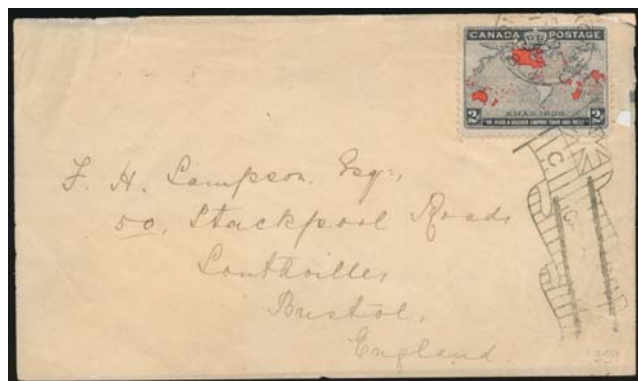 CANADA POSTAGE
XMAS 1898
2c 2c
"WE HOLD A VASTER EMPIRE THAN HAS BEEN"
F. H. Lampson, Esq:,
50, Stackpool Road,
Southville,
Bristol,
England.
C.
359